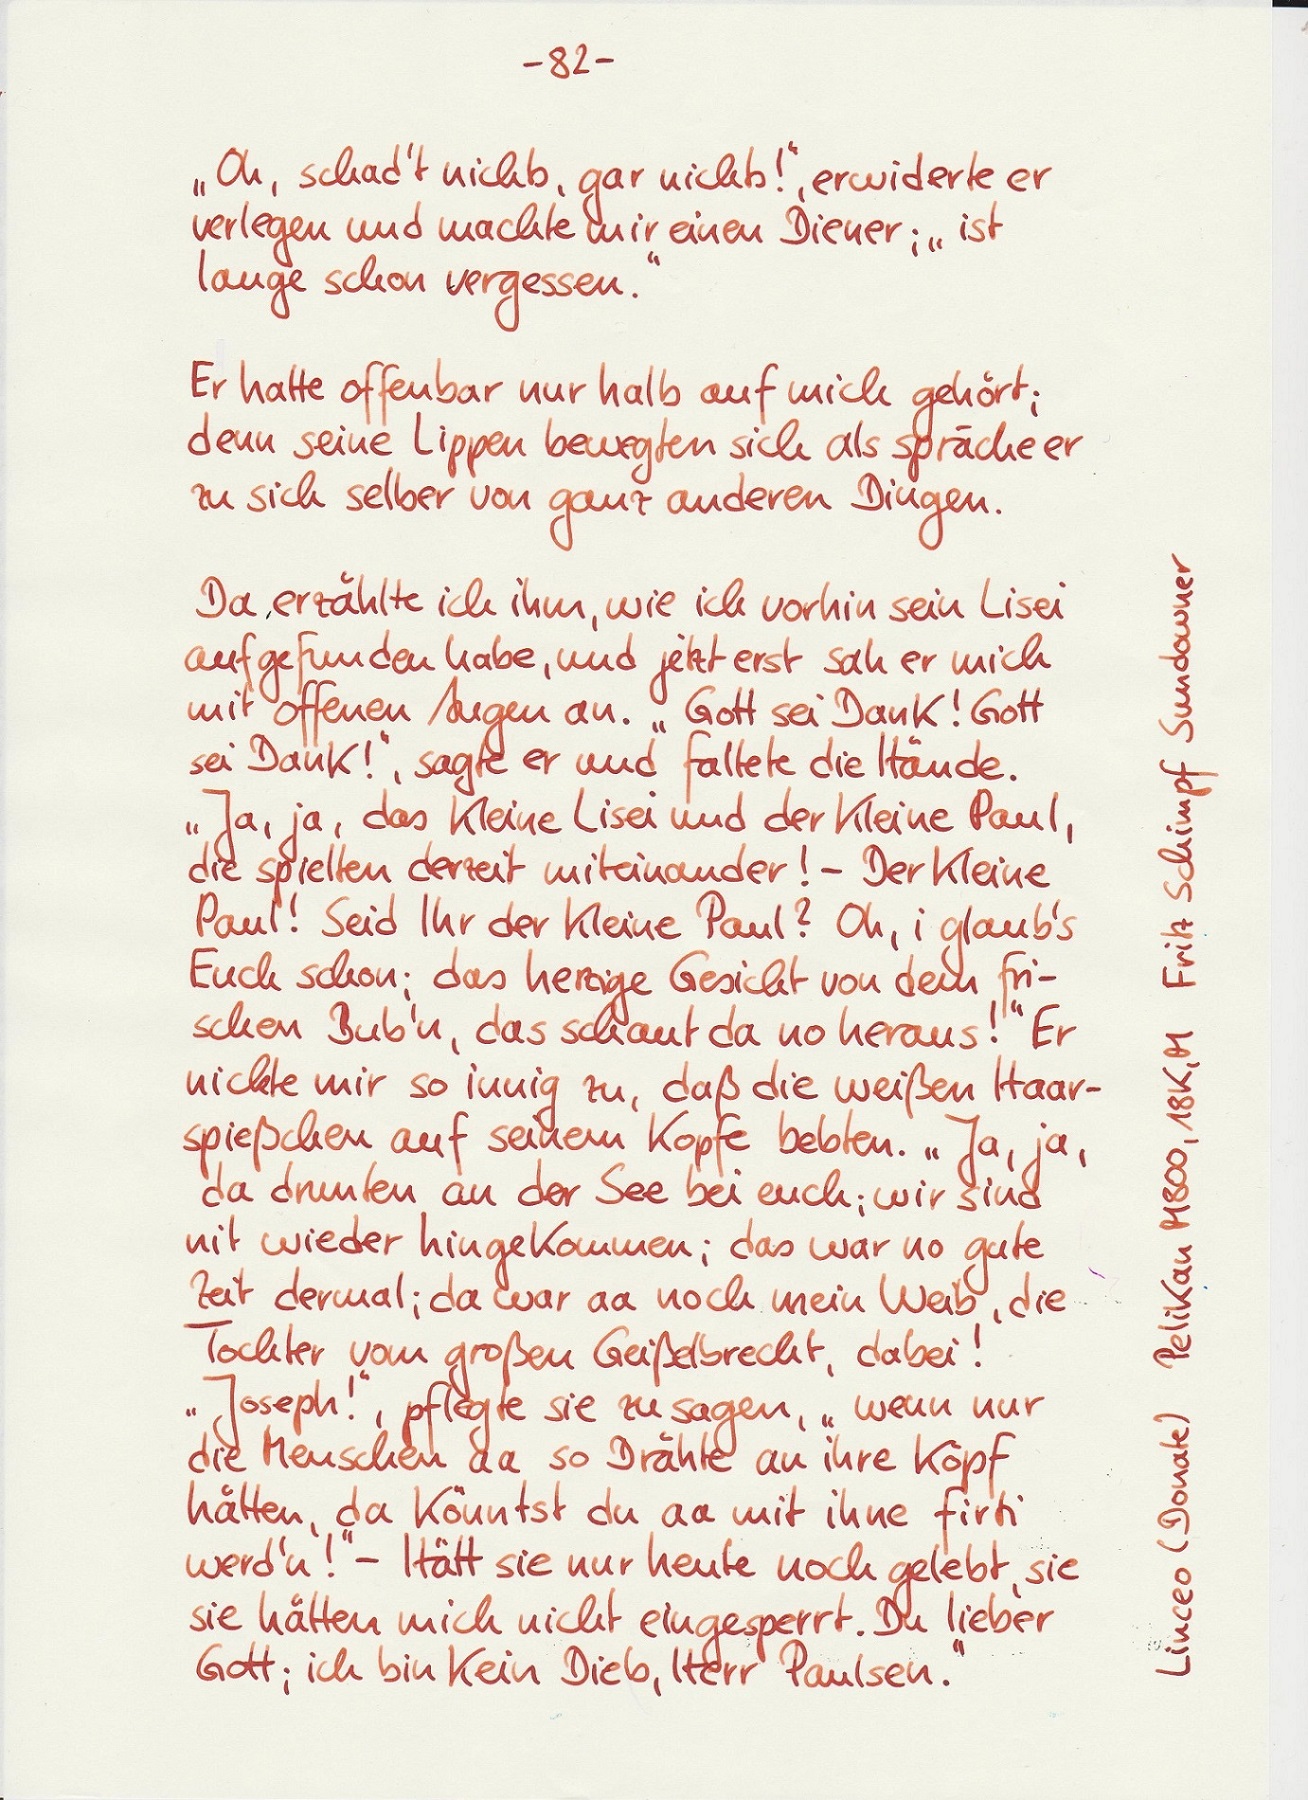 -82-
„Oh, schad't nichts, gar nichts!“, erwiderte er
verlegen und machte mir einen Diener; „ist
lange schon vergessen.“
Er hatte offenbar nur halb auf mich gehört;
denn seine Lippen bewegten sich als spräche er
zu sich selber von ganz anderen Dingen.
Da erzählte ich ihm, wie ich vorhin sein Lisei
aufgefunden habe, und jetzt erst sah er mich
mit offenen Augen an. „Gott sei Dank! Gott
sei Dank!“, sagte er und faltete die Hände.
„Ja, ja, das kleine Lisei und der kleine Paul,
die spielten derzeit miteinander! – Der kleine
Paul! Seid Ihr der kleine Paul? Oh, i glaub's
Euch schon; das herzige Gesicht von dem fri-
schen Bub'n, das schaut da no heraus!“ Er
nickte mir so innig zu, daß die weißen Haar-
spießchen auf seinem Kopfe bebten. „Ja, ja,
da drunten an der See bei euch; wir sind
nit wieder hingekommen; das war no gute
Zeit dermal; da war aa noch mein Weib, die
Tochter vom großen Geißelbrecht, dabei!
„Joseph!“, pflegte sie zu sagen, „wenn nur
die Menschen aa so Drähte an ihre Köpf
hätten, da könntst du aa mit ihne firti
werd'n!“ – Hätt sie nur heute noch gelebt, sie
sie hätten mich nicht eingesperrt. Du lieber
Gott; ich bin kein Dieb, Herr Paulsen.“
Linceo (Donate) Pelikan M800, 18K, M Fritz Schimpf Sundowner